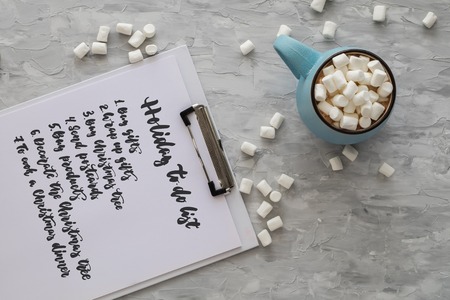 Holiday to do list
1. Buy gifts
2. Wrap up gifts
3. Buy Christmas tree
4. Send postcards
5. Buy products
6. Decorate the Christmas tree
7. To cook a Christmas dinner